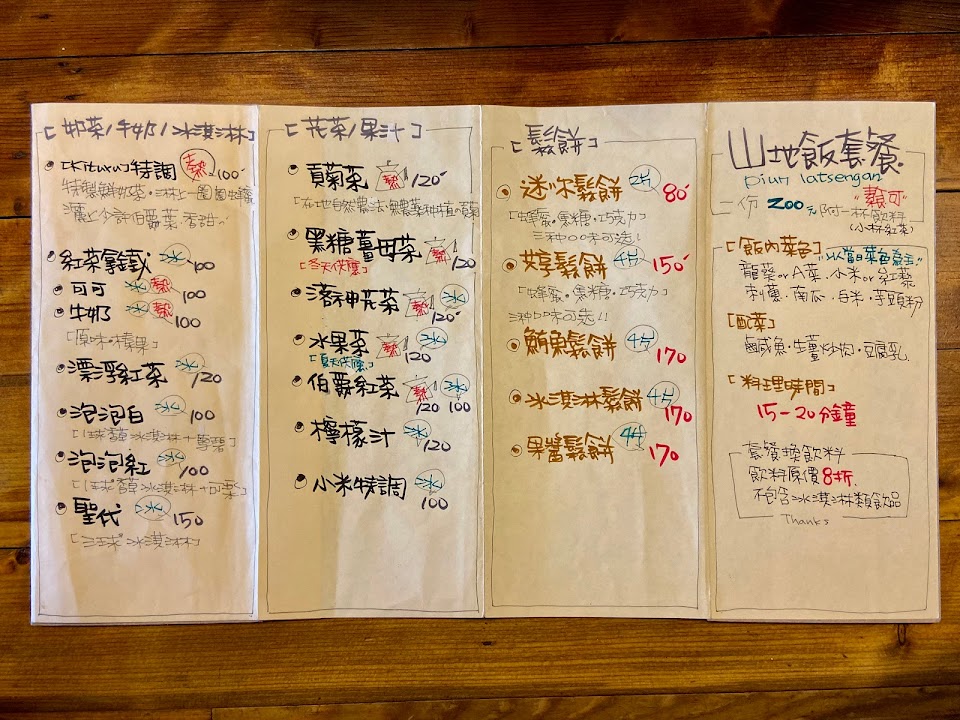 [奶茶/牛奶/冰淇淋]
[Kituru]特調 熱 100
紅茶拿鐵 冰 100
可可 冰 熱 100
牛奶 冰 熱 100
[原味·蜂蜜]
漂浮紅茶 冰 120
泡泡白 冰 100
泡泡紅 冰 100
聖代 冰 150
[三球冰淇淋]
[花茶/果汁]
貢菊茶 壺 熱 120
黑糖薑母茶 壺 120
[冬天供應]
洛神花茶 冰 120
水果茶 熱 冰 120
[夏天供應]
伯爵紅茶 壺 熱 冰
120 100
檸檬汁 冰 120
小米特調 冰
100
[鬆餅]
迷你鬆餅 2片 80
[蜂蜜·黑糖·巧克力]
三種口味可選!
共享鬆餅 4片 150
[蜂蜜·黑糖·巧克力]
三種口味可選!!
鮪魚鬆餅 4片
170
冰淇淋鬆餅 4片
170
果醬鬆餅 4片 170
山地飯套餐
piun latsengan
一份 200元 附一杯飲料
(小杯紅茶)
[飯內菜色] "以當日菜色為主"
龍葵or A菜·小米or紅藜
刺蔥·南瓜·白米·芋頭粉
[配菜]
鹹鹹魚·生薑炒肉·豆腐乳
[料理時間]
15-20分鐘
套餐換飲料
飲料原價8折
不包含冰淇淋類飲品
Thanks